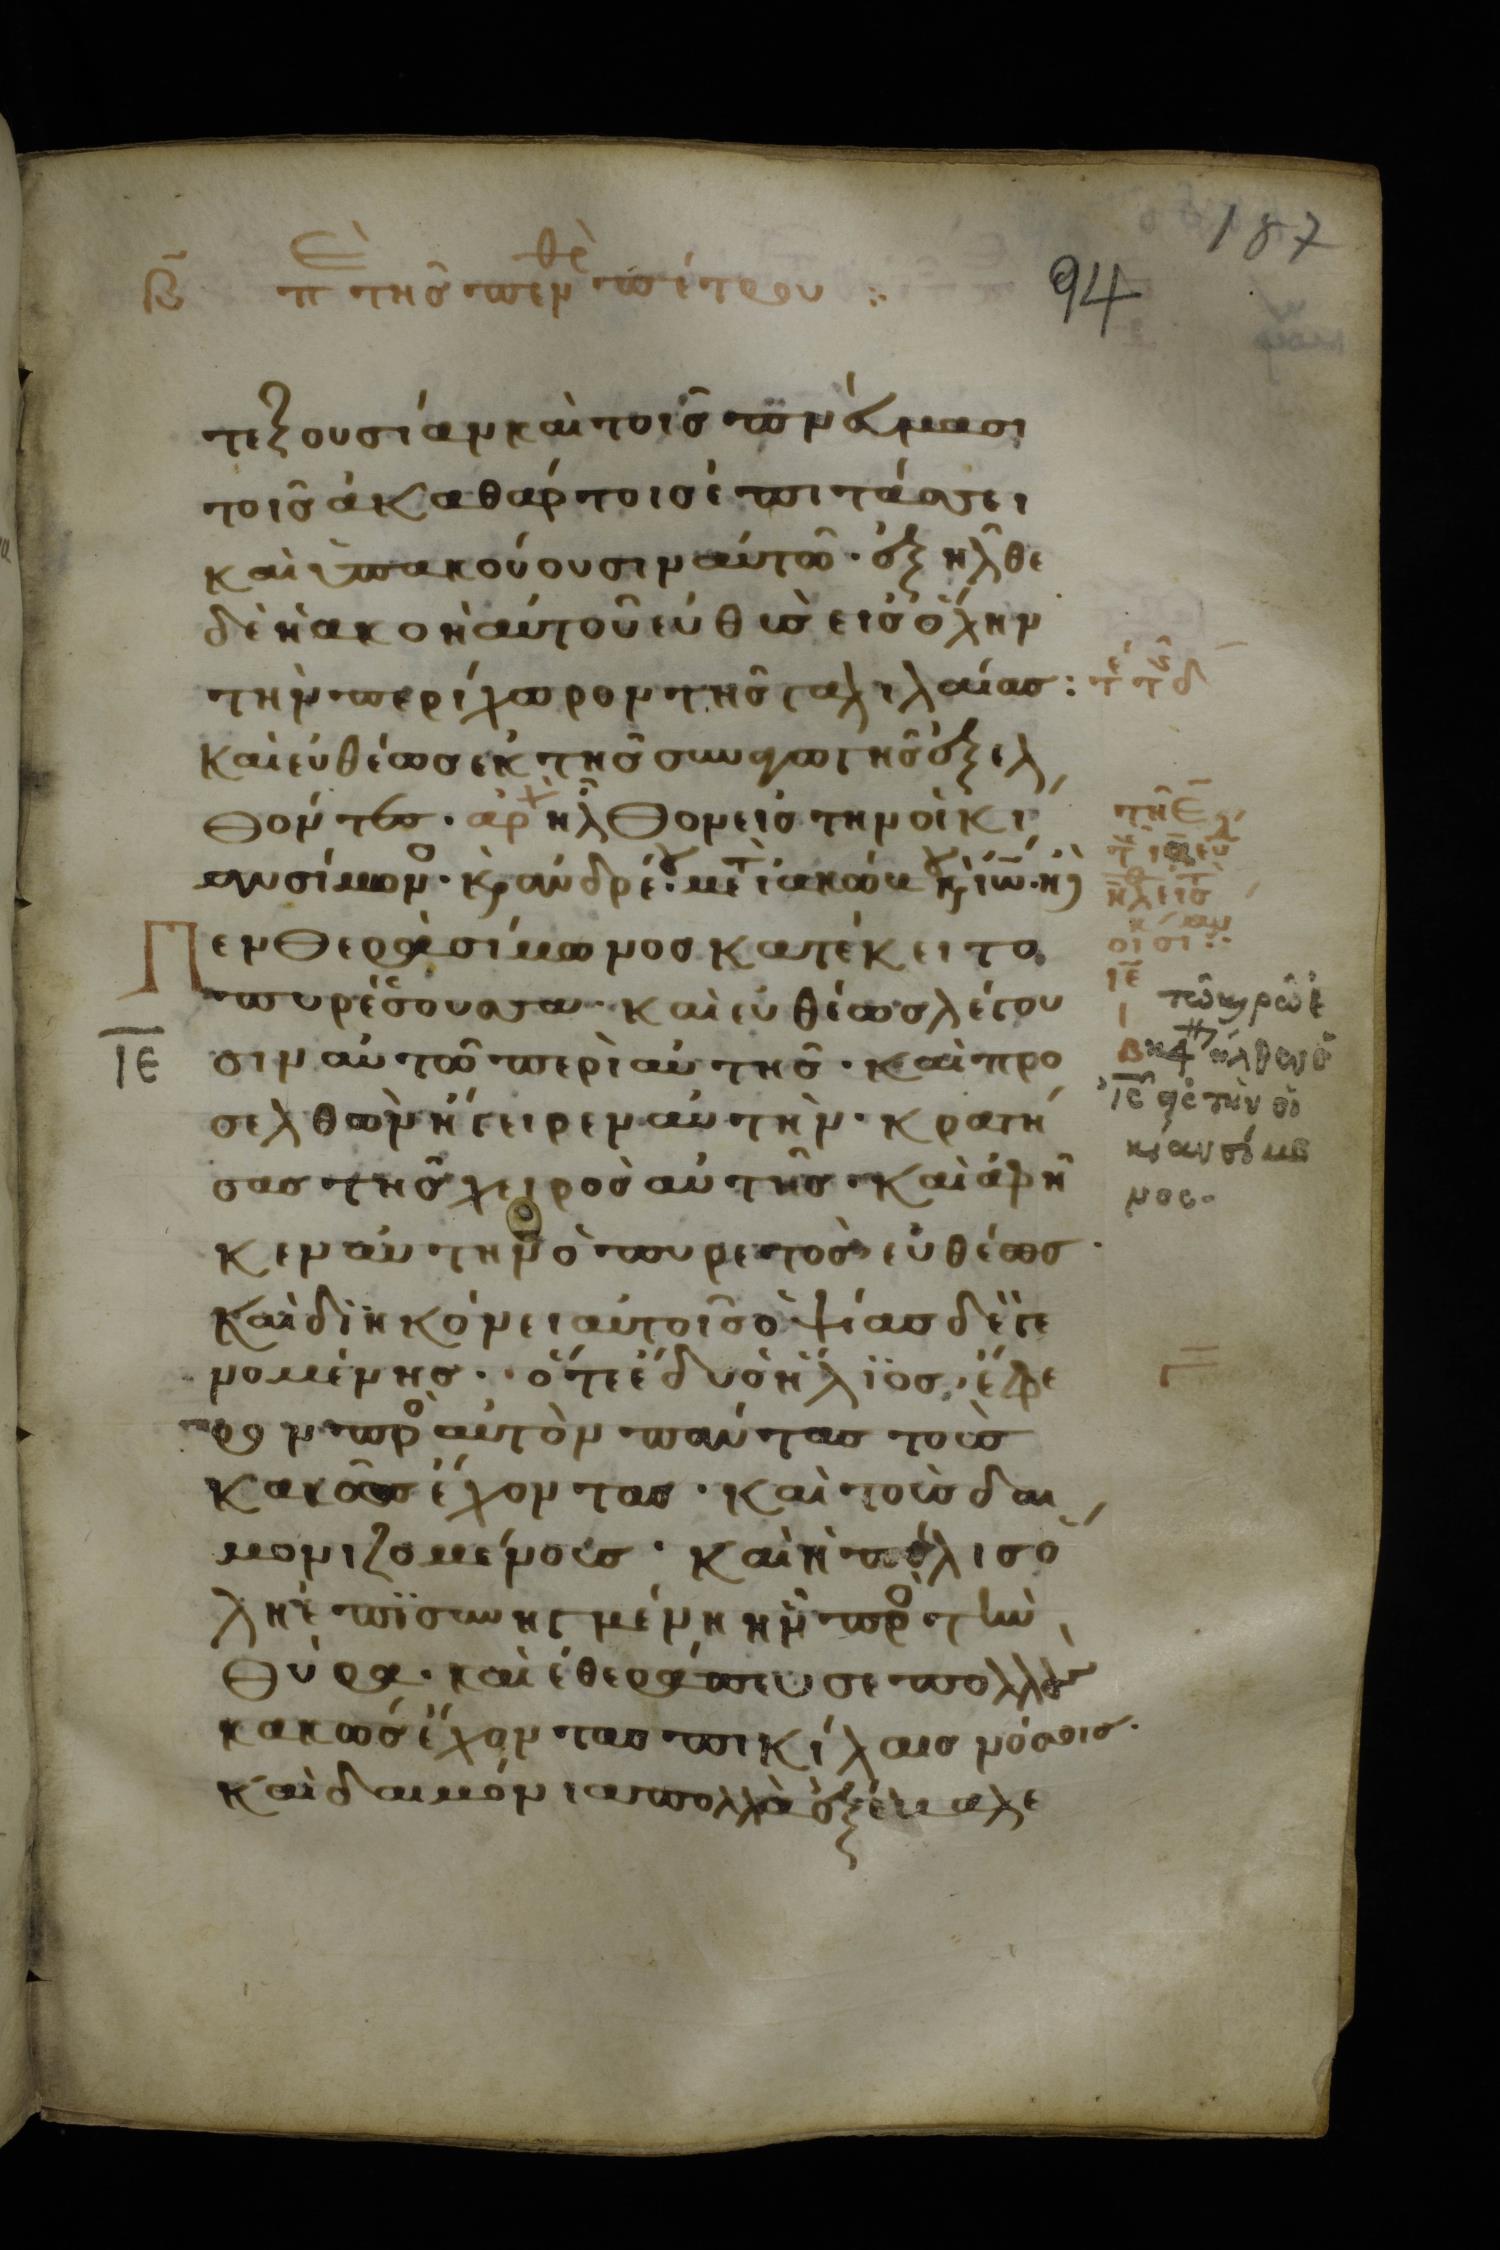 187
94
Β̄ π ε τῆς πεν θε πέτρου :·
τ εξουσίαν καὶ τοῖς πνά̅μασι
τοῖς ἀκαθάρτοισ ἐπιτάσσει
καὶ ὑπακούουσιν αὐτῶ · ἐξῆλθε
δὲ ἡ ἀκοὴ αὐτοῦ εὐθὺς εἰς ὅλην
τὴν περίχωρον τῆς γαλιλαίας : τέ τς δ
Καὶ εὐθέωσ ἐκ τῆς συναγωγῆς ἐξελ
θόντες · ἀρχ ἦλθον εἰς τὴν οἰκί
αν σίμωνο · κ ἀνδρέου · μετ ἰακώβου κ ἰω · ἡ
Πενθερὰ σίμωνος κατέκειτο
πυρέσσουσα · καὶ εὐθέωσ λέγου
ΙΕ σιν αὐτῶ περὶ αὐτῆς · καὶ προ
σελθὼν ἤγειρεν αὐτὴν · κρατή
σας τῆς χειρὸς αὐτῆς · καὶ ἀφῆ
κεν αὐτὴν ὁ πυρετὸς εὐθέως ·
Καὶ διηκόνει αὐτοῖς ὀψίας δὲ γε
νομένης · ὅτε ἔδυ ὁ ἥλιος · ἔφε
ρον προ αὐτὸν πάντας τοὺς
κακῶς ἔχοντας · καὶ τοὺς δαι
μονιζομένους · καὶ ἡ πόλις ὅ
λη ἐπισυνηγμένη ἦν προ τὴν
θύρα · καὶ ἐθεράπευσε πολλοὺς
κακῶς ἔχοντας ποικίλαις νόσοις ·
καὶ δαιμόνια πολλὰ ἐξέβαλε
ΙΕ
Ι
Β
ἦλθεν ὁ
ἰς εἰς τὴν οἰ
κίαν σίμω
νος ·